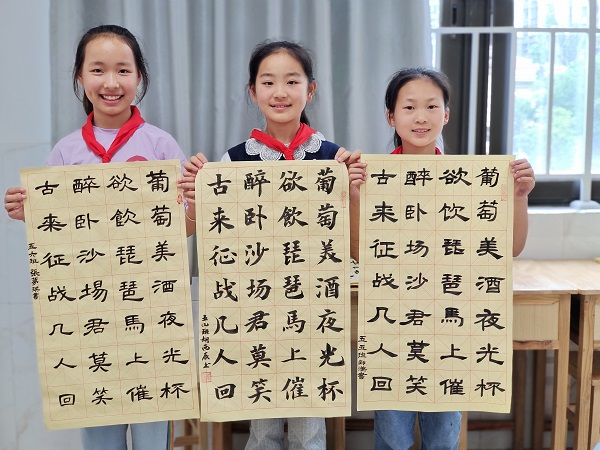 葡萄美酒夜光杯
欲飲琵琶馬上催
醉卧沙場君莫笑
古來征战几人回
五六班 張 書
葡萄美酒夜光杯
欲飲琵琶馬上催
醉卧沙场君莫笑
古来征战几人回
葡萄美酒夜光杯
欲饮琵琶馬上催
醉卧场沙君莫笑
古来征战几人回
五五班 書